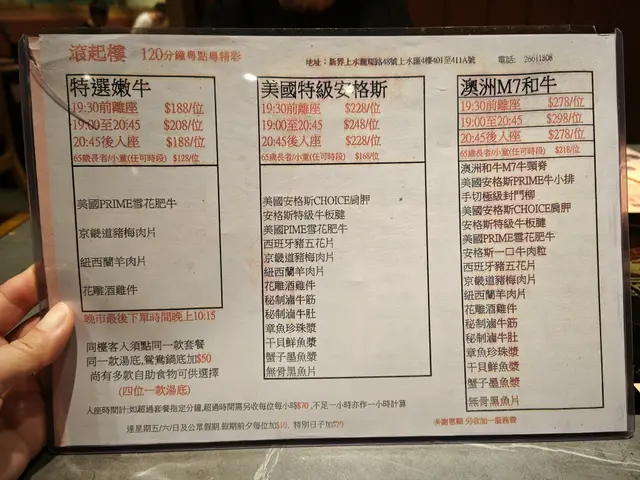 滾起樓 120分鐘粵點粵精彩 地址：新界上水龍琛路48號上水匯4樓401至411A號 電話: 26611808
特選嫩牛
19:30前離座 $188/位
19:00至20:45 $208/位
20:45後入座 $188/位
65歲長者/小童(任可時段) $128/位
美國PRIME雪花肥牛
京畿道豬梅肉片
紐西蘭羊肉片
花雕酒雞件
晚市最後下單時間晚上10:15
同檯客人須點同一款套餐
同一款湯底,鴛鴦鍋底加$50
尚有多款自助食物可供選擇
(四位一款湯底)
美國特級安格斯
19:30前離座 $228/位
19:00至20:45 $248/位
20:45後入座 $228/位
65歲長者/小童(任可時段) $168/位
美國安格斯CHOICE肩胛
安格斯特級牛板腱
美國PIME雪花肥牛
西班牙豬五花片
京畿道豬梅肉片
紐西蘭羊肉片
花雕酒雞件
秘制滷牛筋
秘制滷牛肚
章魚珍珠漿
干貝鮮魚漿
蟹子墨魚漿
無骨黑魚片
澳洲M7和牛
19:30前離座 $278/位
19:00至20:45 $298/位
20:45後入座 $278/位
65歲長者/小童(任可時段) $218/位
澳洲和牛M7牛頸脊
美國安格斯PRIME牛小排
手切極級封門柳
美國安格斯CHOICE肩胛
安格斯特級牛板腱
美國PRIME雪花肥牛
安格斯一口牛肉粒
西班牙豬五花片
京畿道豬梅肉片
紐西蘭羊肉片
花雕酒雞件
秘制滷牛筋
秘制滷牛肚
章魚珍珠漿
干貝鮮魚漿
蟹子墨魚漿
無骨黑魚片
入座時間計:如超過套餐指定分鐘,超過時間需另收每位每小時$70,不足一小時亦作一小時計算
逢星期五/六/日及公眾假期.假期前夕每位加$10, 特別日子加$20
多謝惠顧 另收加一服務費